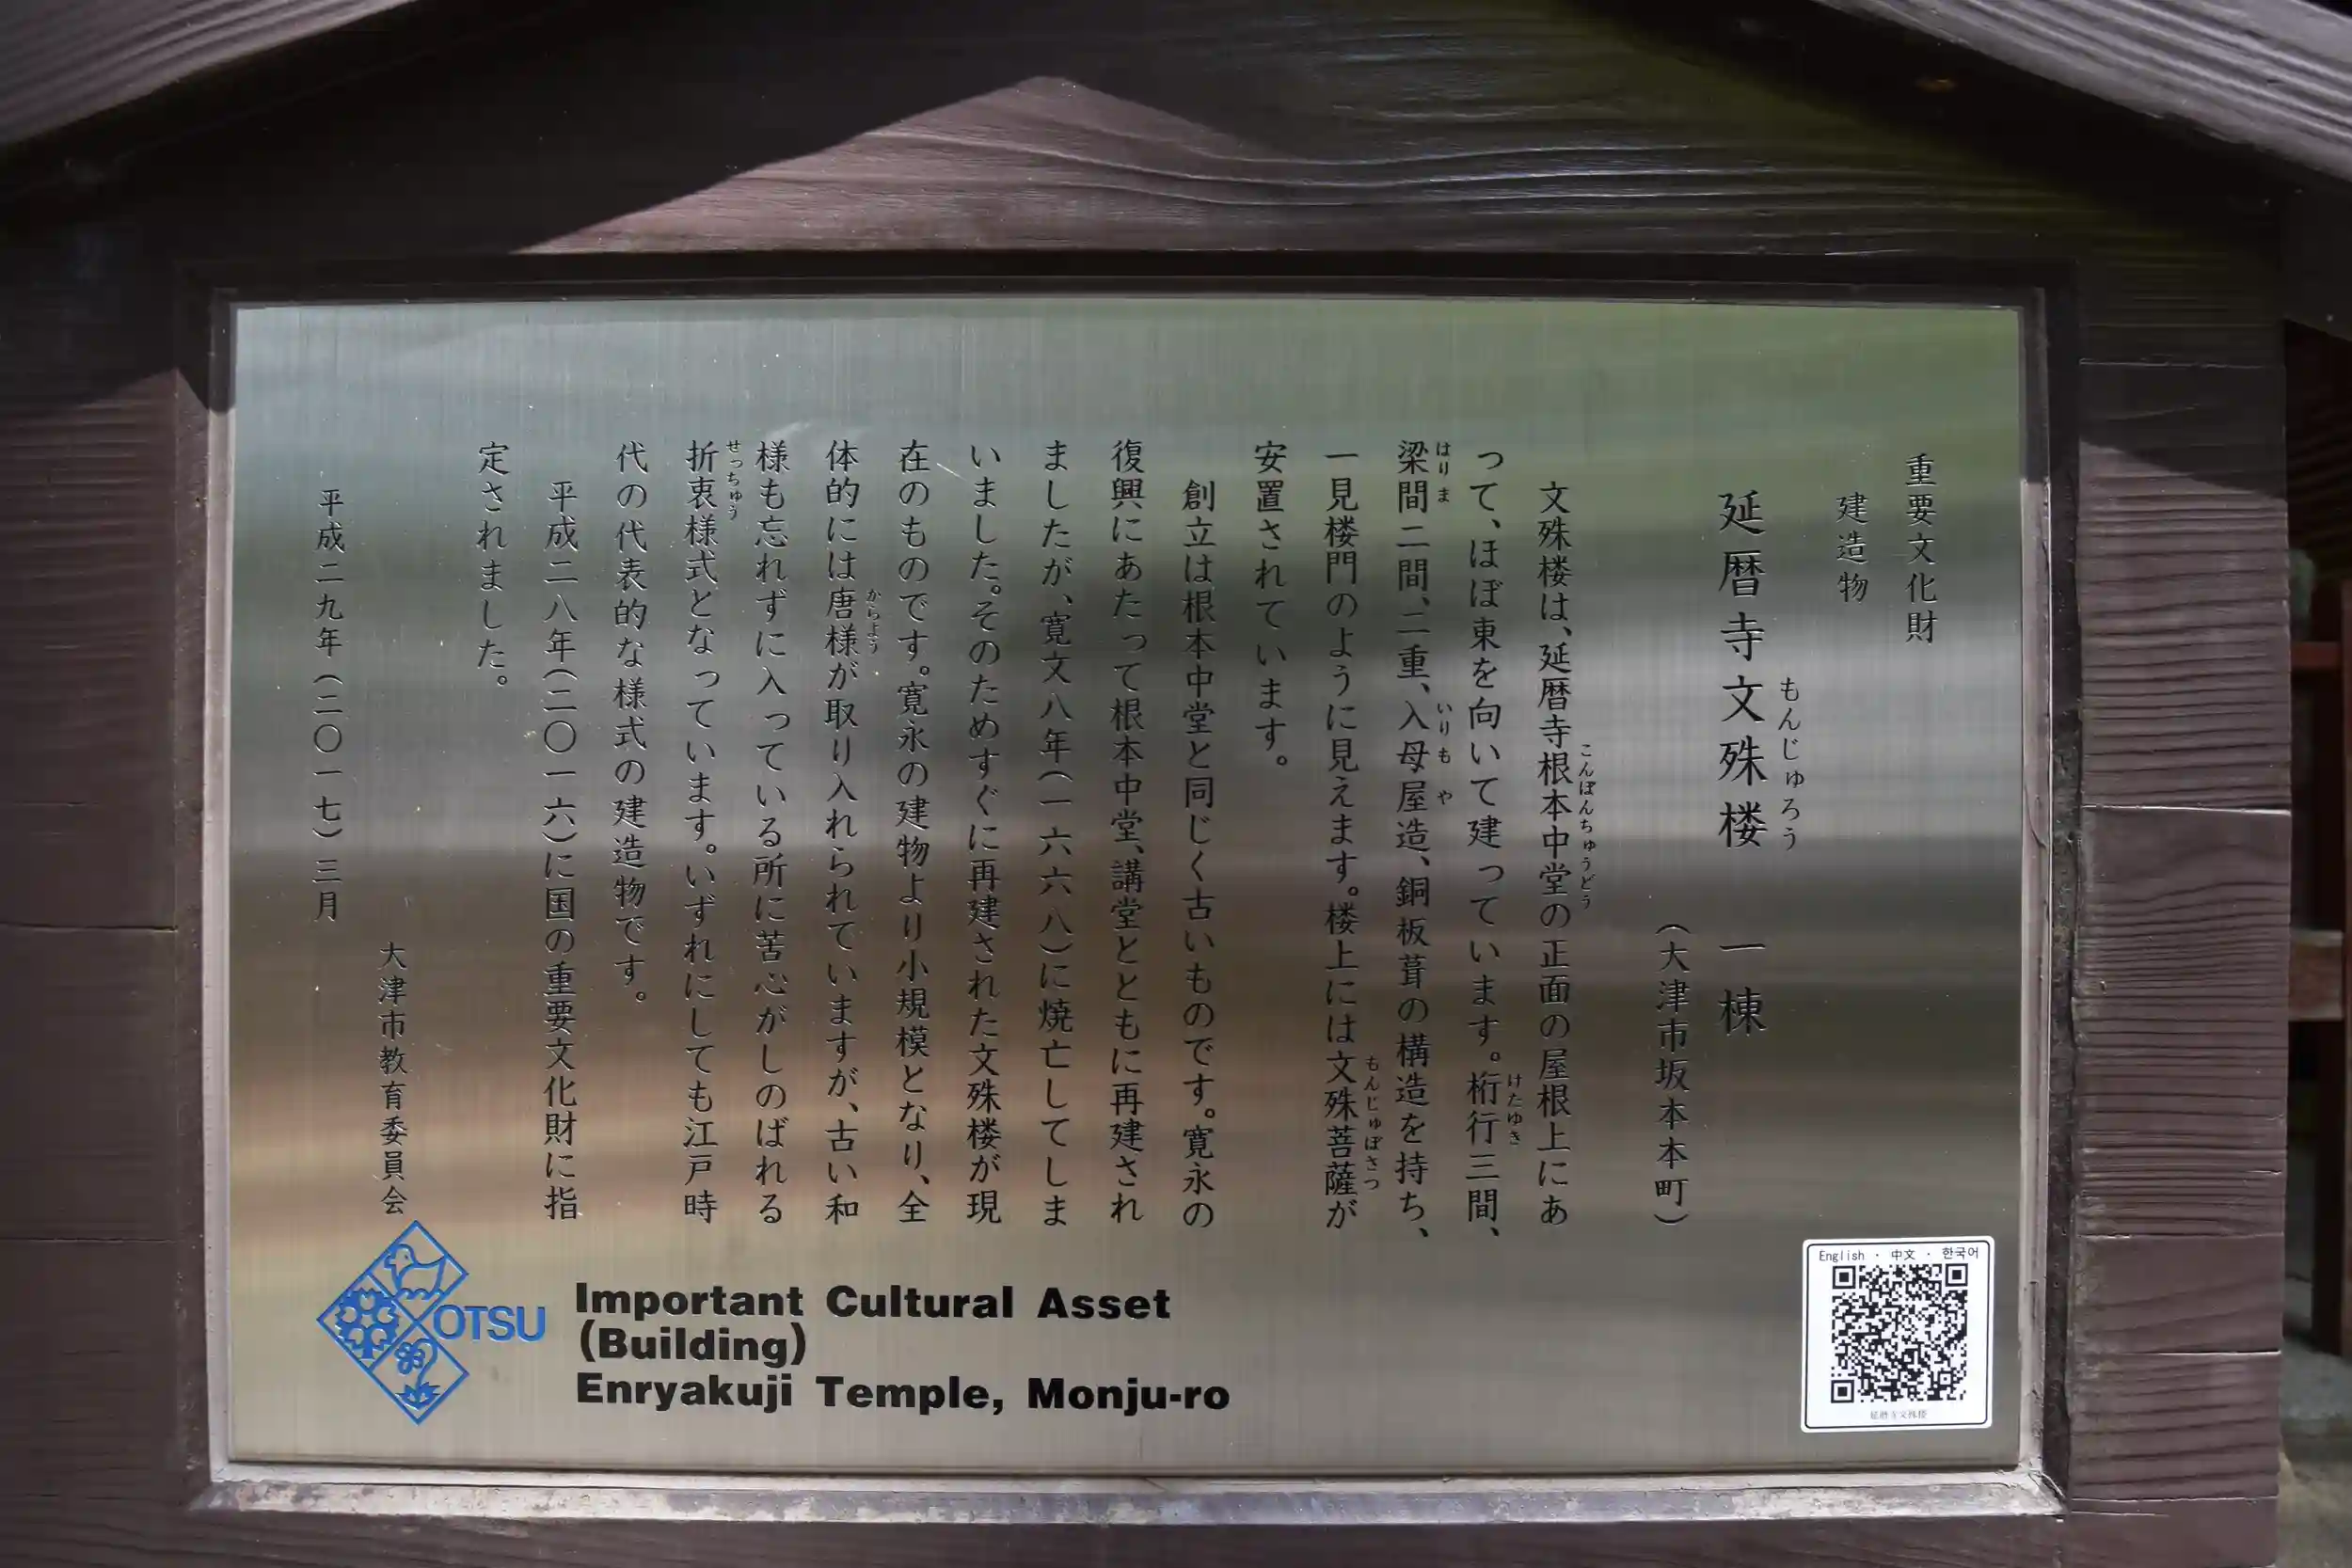 重要文化財
建造物
延暦寺文殊楼 一棟
もんじゅろう
(大津市坂本本町)
文殊楼は、延暦寺根本中堂の正面の屋根上にあ
こんぽんちゅうどう
って、ほぼ東を向いて建っています。桁行三間、
けたゆき
梁間二間、二重、入母屋造、銅板葺の構造を持ち、
はりま いりもや
一見楼門のように見えます。楼上には文殊菩薩が
もんじゅぼさつ
安置されています。
創立は根本中堂と同じく古いものです。寛永の
復興にあたって根本中堂、講堂とともに再建され
ましたが、寛文八年(一六六八)に焼亡してしま
いました。そのためすぐに再建された文殊楼が現
在のものです。寛永の建物より小規模となり、全
体的には唐様が取り入れられていますが、古い和
からよう
様も忘れずに入っている所に苦心がしのばれる
折衷様式となっています。いずれにしても江戸時
せっちゅう
代の代表的な様式の建造物です。
平成二八年(二〇一六)に国の重要文化財に指
定されました。
大津市教育委員会
平成二九年(二〇一七)三月
OTSU
Important Cultural Asset
(Building)
Enryakuji Temple, Monju-ro
English・中文・한국어
延暦寺文殊楼